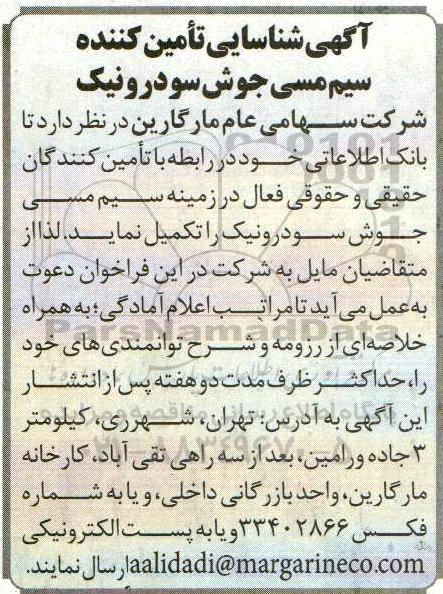 آگهی شناسایی تأمین کننده
سیم مسی جوش سودرونیک
شرکت سهامی عام مارگارین در نظر دارد تا
بانک اطلاعاتی خود در رابطه با تأمین کنندگان
حقیقی و حقوقی فعال در زمینه سیم مسی
جوش سودرونیک را تکمیل نماید. لذا از
متقاضیان مایل به شرکت در این فراخوان دعوت
به عمل می آید تا مراتب اعلام آمادگی؛ به همراه
خلاصه ای از رزومه و شرح توانمندی های خود
را، حداکثر ظرف مدت دو هفته پس از انتشار
این آگهی به آدرس: تهران، شهرری، کیلومتر
۳ جاده ورامین، بعد از سه راهی تقی آباد، کارخانه
مارگارین، واحد بازرگانی داخلی، و یا به شماره
فکس ۳۳۴۰۲۸۶۶ و یا به پست الکترونیکی
aalidadi@margarineco.com ارسال نمایند.
ParsNamadData